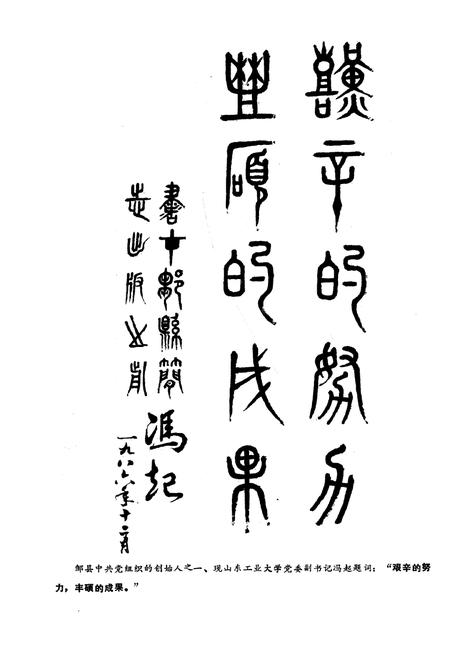 艱辛的努力
豐碩的成果
書于鄒縣簡
志出版之前
馮起
一九八六年十二月
邹县中共党组织的创始人之一、现山东工业大学党委副书记冯起题词：“艰辛的努
力，丰硕的成果。”